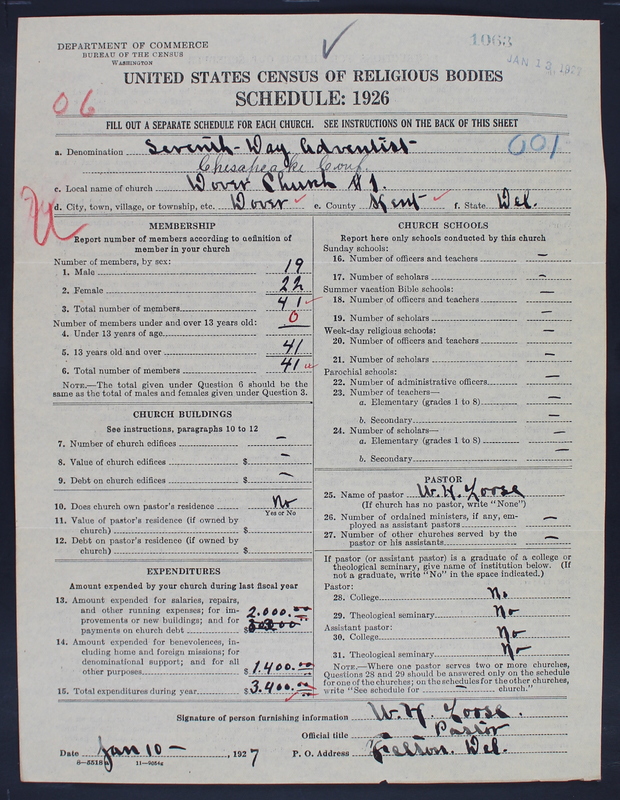 DEPARTMENT OF COMMERCE
BUREAU OF THE CENSUS
WASHINGTON
1063
JAN 13 1927
UNITED STATES CENSUS OF RELIGIOUS BODIES
SCHEDULE: 1926
06
FILL OUT A SEPARATE SCHEDULE FOR EACH CHURCH. SEE INSTRUCTIONS ON THE BACK OF THIS SHEET
a. Denomination Seventh-Day Adventist 001
Chesapeake Conf.
c. Local name of church Dover Church #1.
d. City, town, village, or township, etc. Dover e. County Kent f. State Del.
MEMBERSHIP
Report number of members according to definition of
member in your church
Number of members, by sex:
1. Male 19
2. Female 22
3. Total number of members 41
Number of members under and over 13 years old:
4. Under 13 years of age 0
5. 13 years old and over 41
6. Total number of members 41
NOTE.—The total given under Question 6 should be the
same as the total of males and females given under Question 3.
CHURCH BUILDINGS
See instructions, paragraphs 10 to 12
7. Number of church edifices —
8. Value of church edifices $ —
9. Debt on church edifices $ —
10. Does church own pastor's residence No
Yes or No
11. Value of pastor's residence (if owned by
church) $
12. Debt on pastor's residence (if owned by
church) $
EXPENDITURES
Amount expended by your church during last fiscal year
13. Amount expended for salaries, repairs,
and other running expenses; for im- 2.000.00
provements or new buildings; and for
payments on church debt $
14. Amount expended for benevolences, in-
cluding home and foreign missions; for
denominational support; and for all
other purposes $ 1.400.00
15. Total expenditures during year $ 3.400.00
CHURCH SCHOOLS
Report here only schools conducted by this church
Sunday schools:
16. Number of officers and teachers —
17. Number of scholars —
Summer vacation Bible schools:
18. Number of officers and teachers —
19. Number of scholars —
Week-day religious schools:
20. Number of officers and teachers —
21. Number of scholars —
Parochial schools:
22. Number of administrative officers —
23. Number of teachers—
a. Elementary (grades 1 to 8) —
b. Secondary —
24. Number of scholars—
a. Elementary (grades 1 to 8) —
b. Secondary —
PASTOR
25. Name of pastor W. H. Loose
(If church has no pastor, write "None")
26. Number of ordained ministers, if any, em-
ployed as assistant pastors —
27. Number of other churches served by the
pastor or his assistants —
If pastor (or assistant pastor) is a graduate of a college or
theological seminary, give name of institution below. (If
not a graduate, write "No" in the space indicated.)
Pastor:
28. College No
29. Theological seminary No
Assistant pastor:
30. College No
31. Theological seminary No
NOTE.—Where one pastor serves two or more churches,
Questions 28 and 29 should be answered only on the schedule
for one of the churches; on the schedules for the other churches,
write "See schedule for — church."
Signature of person furnishing information W. H. Loose.
Official title Pastor
Date Jan 10 — , 1927 P. O. Address Felton. Del.
8—5518a 11—9054a